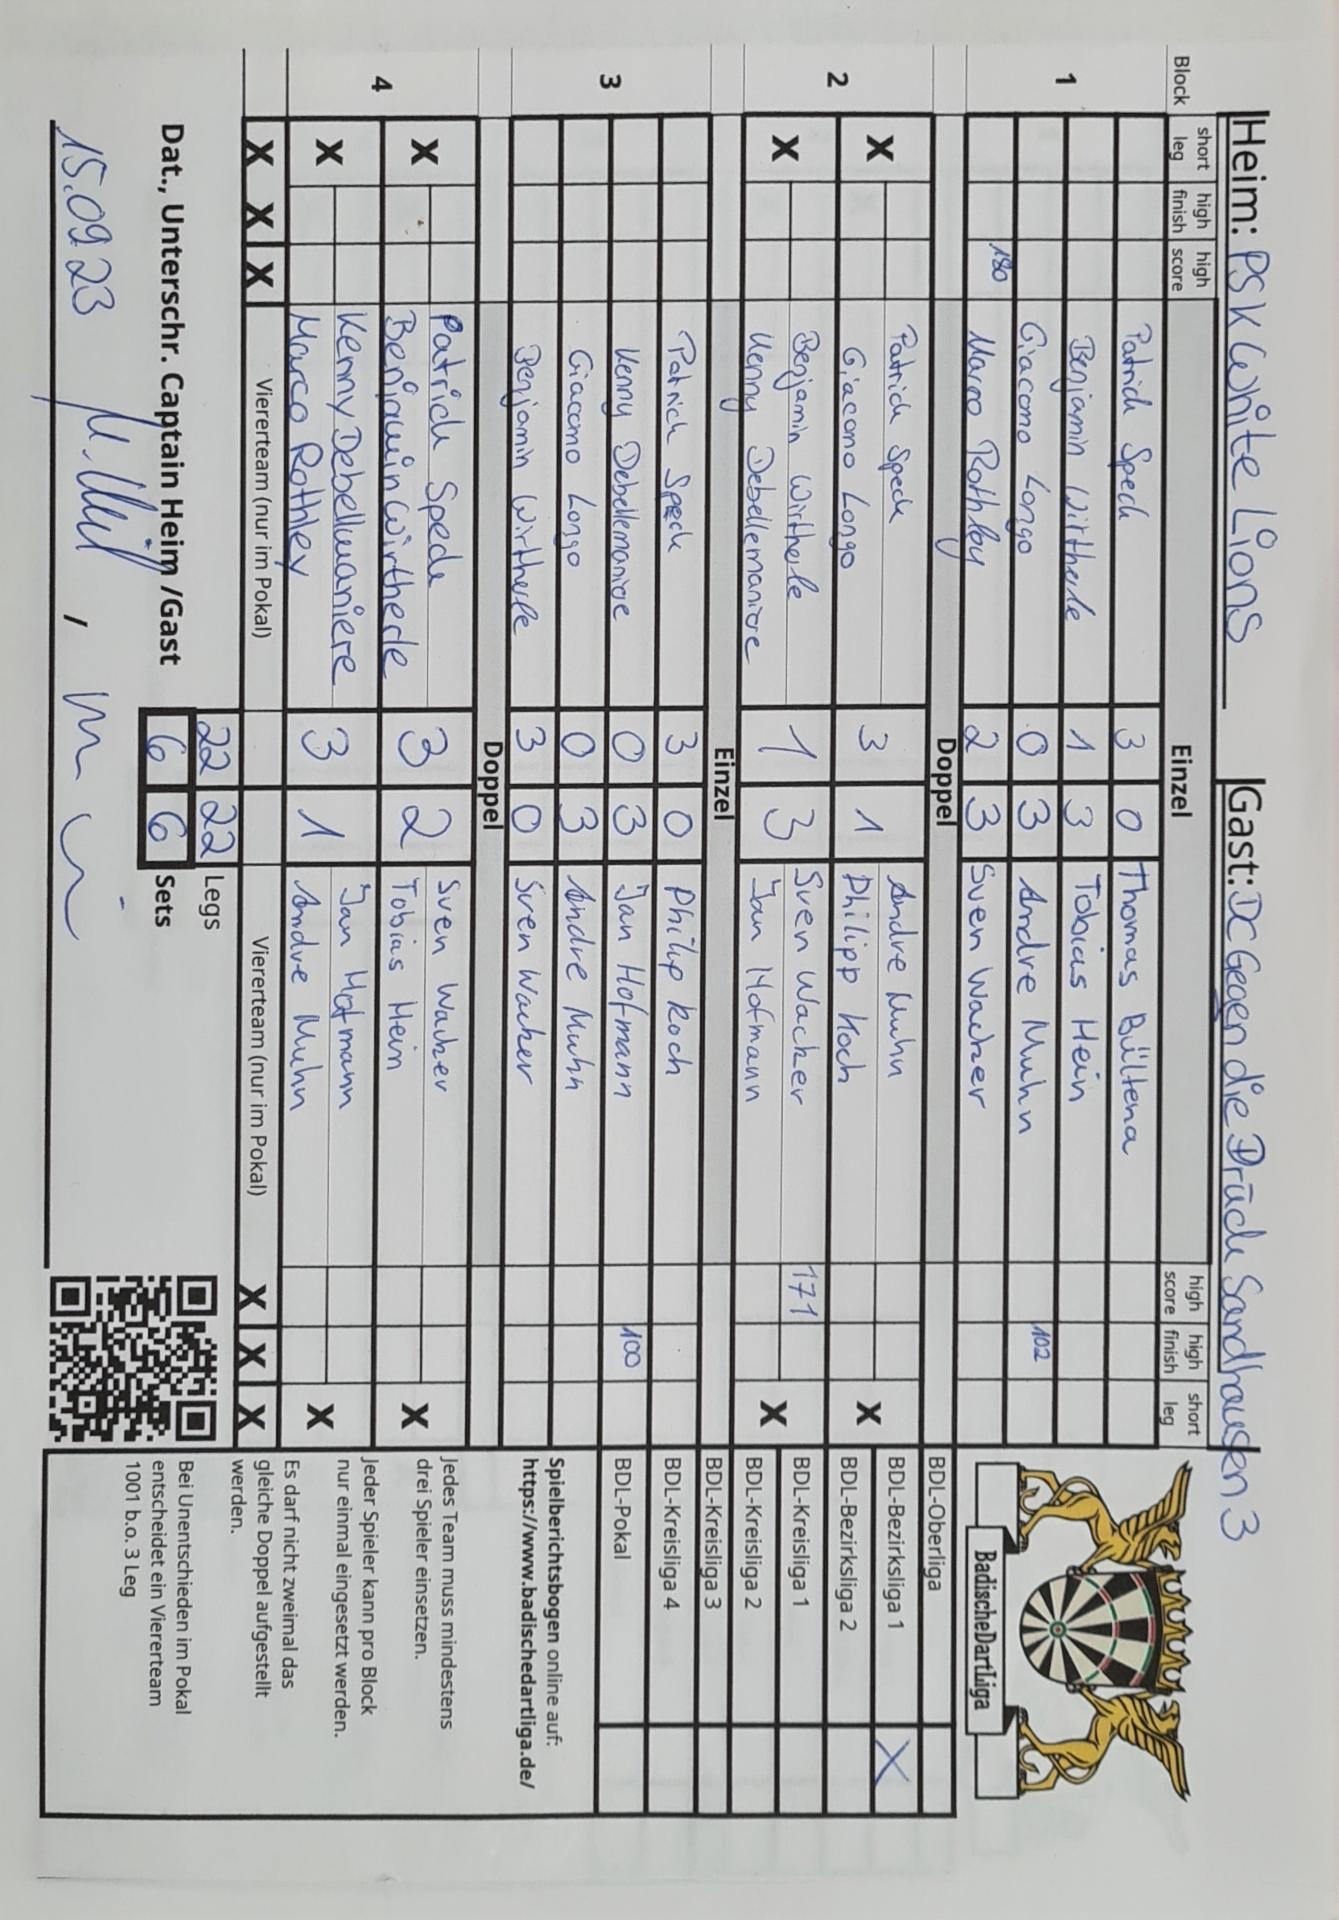 Heim: PSK White Lions Gast: DC Gegen die Drück Sandhausen 3
Block short leg high finish high score Einzel high score high finish short leg
1
Patrick Speck 3 0 Thomas Bültena
Benjamin Wirtherle 1 3 Tobias Hein
Giacomo Longo 0 3 Andre Muhn 102
180 Marco Rothley 2 3 Sven Wacker
Doppel
2
X Patrick Speck 3 1 Andre Muhn X
Giacomo Longo Philipp Koch
X Benjamin Wirtherle 1 3 Sven Wacker 171 X
Kenny Debellemaniere Jan Hofmann
Einzel
3
Patrick Speck 3 0 Philip Koch
Kenny Debellemaniere 0 3 Jan Hofmann 100
Giacomo Longo 0 3 Andre Muhn
Benjamin Wirtherle 3 0 Sven Wacker
Doppel
4
X Patrick Speck 3 2 Sven Wacker X
Benjamin Wirtherle Tobias Hein
X Kenny Debellemaniere 3 1 Jan Hofmann X
Marco Rothley Andre Muhn
X X X Vierteam (nur im Pokal) Viererteam (nur im Pokal) X X X
22 22 Legs
Dat., Unterschr. Captain Heim /Gast 6 6 Sets
15.09.23 ,
BadischeDartLiga
BDL-Oberliga
BDL-Bezirksliga 1 X
BDL-Bezirksliga 2
BDL-Kreisliga 1
BDL-Kreisliga 2
BDL-Kreisliga 3
BDL-Kreisliga 4
BDL-Pokal
Spielberichtsbogen online auf:
https://www.badischedartliga.de/
Jedes Team muss mindestens
drei Spieler einsetzen.
Jeder Spieler kann pro Block
nur einmal eingesetzt werden.
Es darf nicht zweimal das
gleiche Doppel aufgestellt
werden.
Bei Unentschieden im Pokal
entscheidet ein Viererteam
1001 b.o. 3 Leg